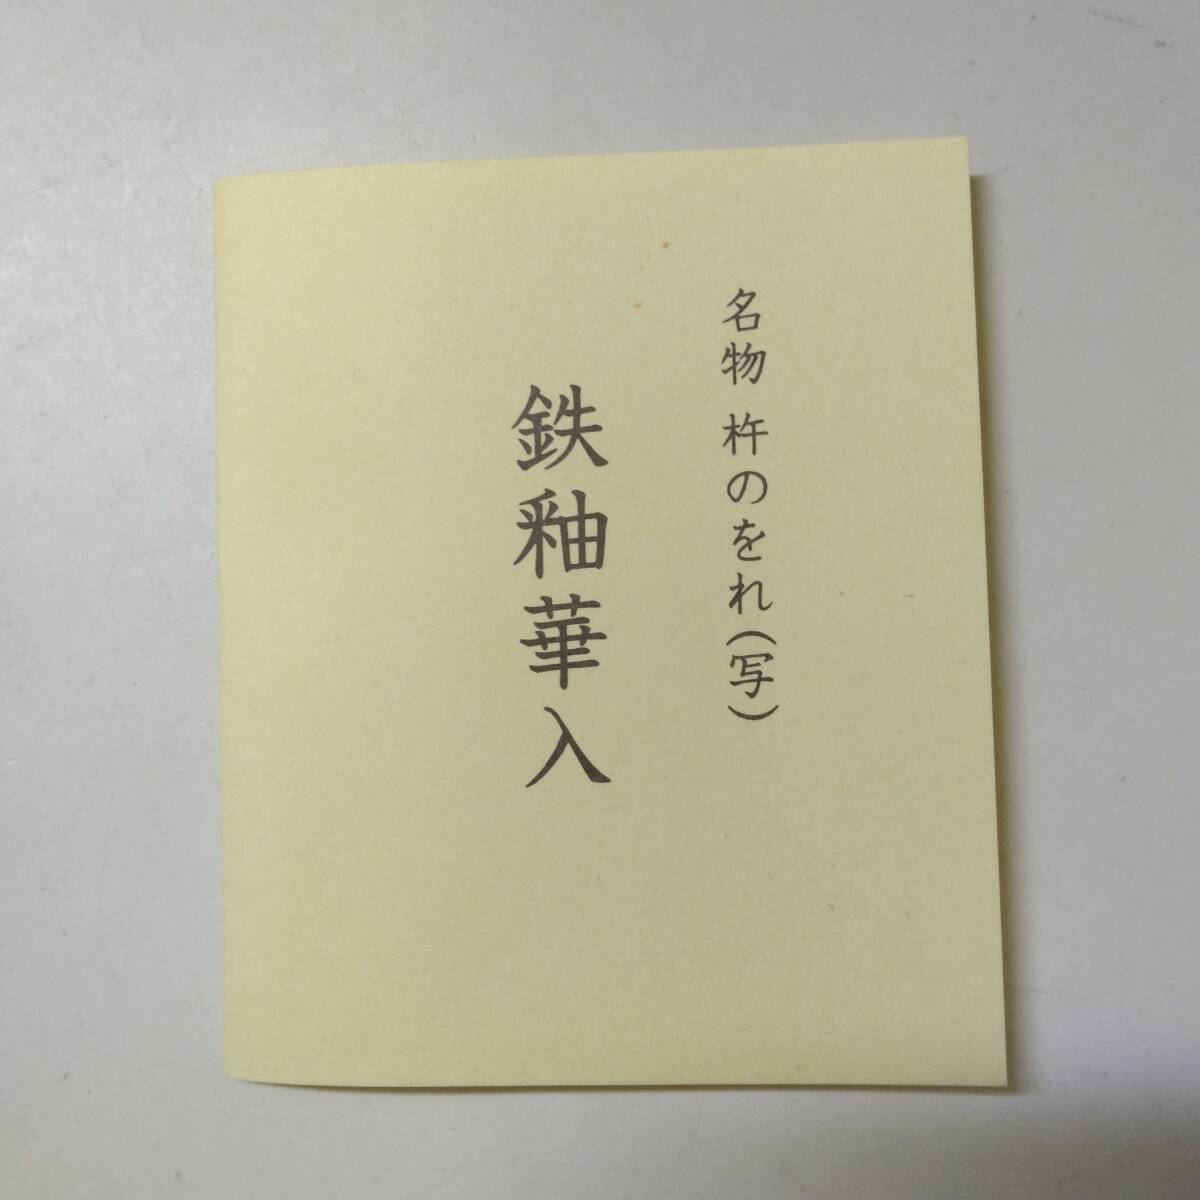 名物 杵のをれ(写)
鉄釉華入